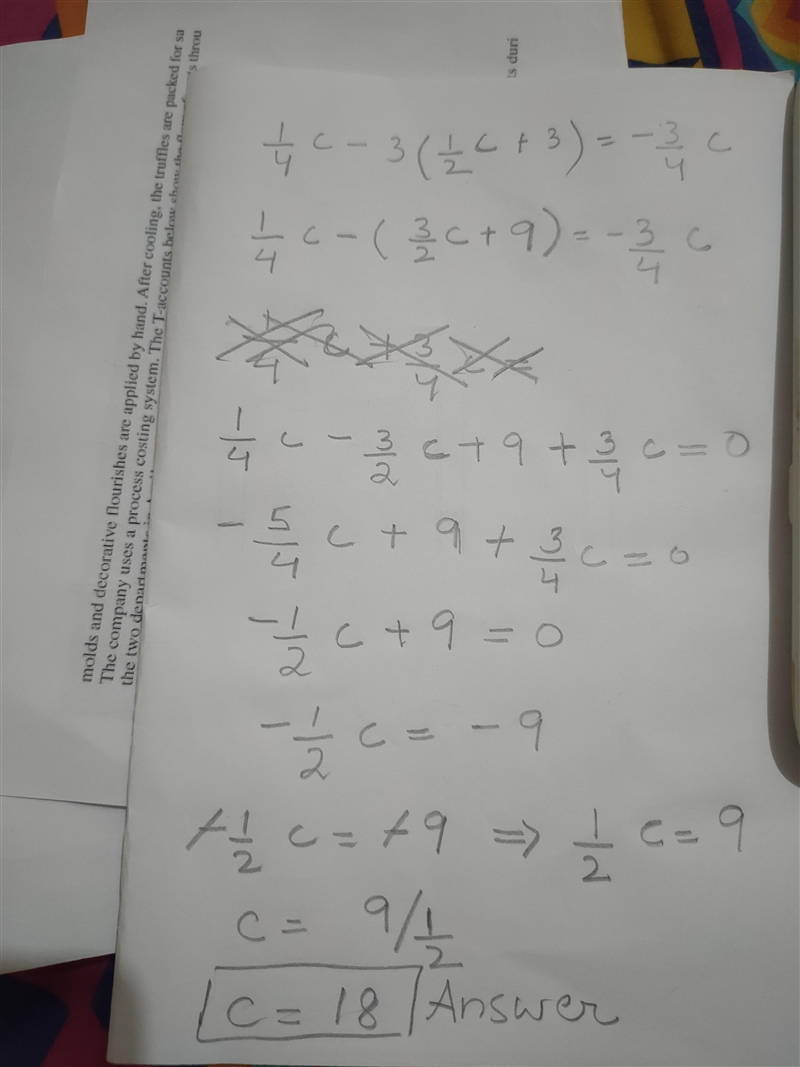 molds and decorative flourishes are applied by hand. After cooling, the truffles are packed for sa
The company uses a process costing system. The T-accounts below show the
the two departments
s throu
ts duri
1/4 c - 3(1/2 c + 3) = -3/4 c
1/4 c - (3/2 c + 9) = -3/4 c
1/4 c - 3/2 c + 9 + 3/4 c = 0
-5/4 c + 9 + 3/4 c = 0
-1/2 c + 9 = 0
-1/2 c = -9
-1/2 c = -9 ⇒ 1/2 c = 9
c = 9/1/2
c = 18 Answer